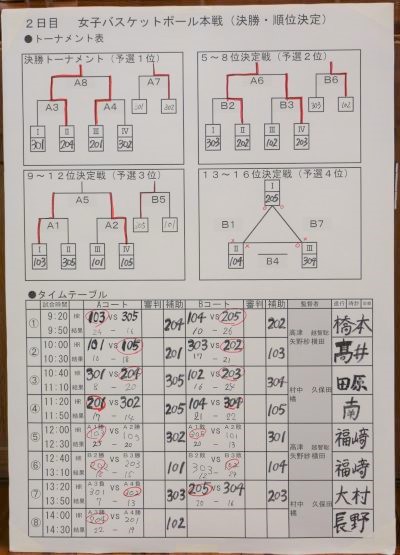 2日目 女子バスケットボール本戦(決勝・順位決定)
●トーナメント表
決勝トーナメント(予選1位)
A8
A7
A3
A4
201
302
I
II
III
IV
301
204
201
302
5~8位決定戦(予選2位)
A6
B6
B2
B3
303
102
I
II
III
IV
303
202
102
203
9~12位決定戦(予選3位)
A5
B5
A1
A2
203
101
I
II
III
IV
103
305
101
105
13~16位決定戦(予選4位)
I
205
B1
B7
II
104
B4
III
304
●タイムテーブル
試合時間 HR Aコート 審判 補助 HR Bコート 審判 補助 監督者 進行 時計
① 9:20 HR 103 vs 305 204 104 vs 205 202 高津 越智聡 橋本
9:50 結果 23 - 16 10 - 26 矢野紗 横田
② 10:00 HR 101 vs 105 201 303 vs 202 103 高井
10:30 結果 16 - 18 17 - 21
③ 10:40 HR 301 vs 204 305 102 vs 203 104 村中 久保田 田原
11:10 結果 8 - 20 16 - 24 橘
④ 11:20 HR 201 vs 302 205 104 vs 304 105 南
11:50 結果 17 - 14 21 - 22
⑤ 12:00 HR A1勝 vs A2勝 302 A1負 vs A2負 301 高津 越智聡 福﨑
12:30 結果 矢野紗 横田
⑥ 12:40 HR B2勝 B3勝 101 B2負 B3負 104 福﨑
13:10 結果
⑦ 13:20 HR A3負 vs A4負 303 205 vs 304 203 村中 久保田 大村
13:50 結果 7 - 13 20 - 16 橘
⑧ 14:00 HR A3勝 vs A4勝 102 長野
14:30 結果 22 - 19